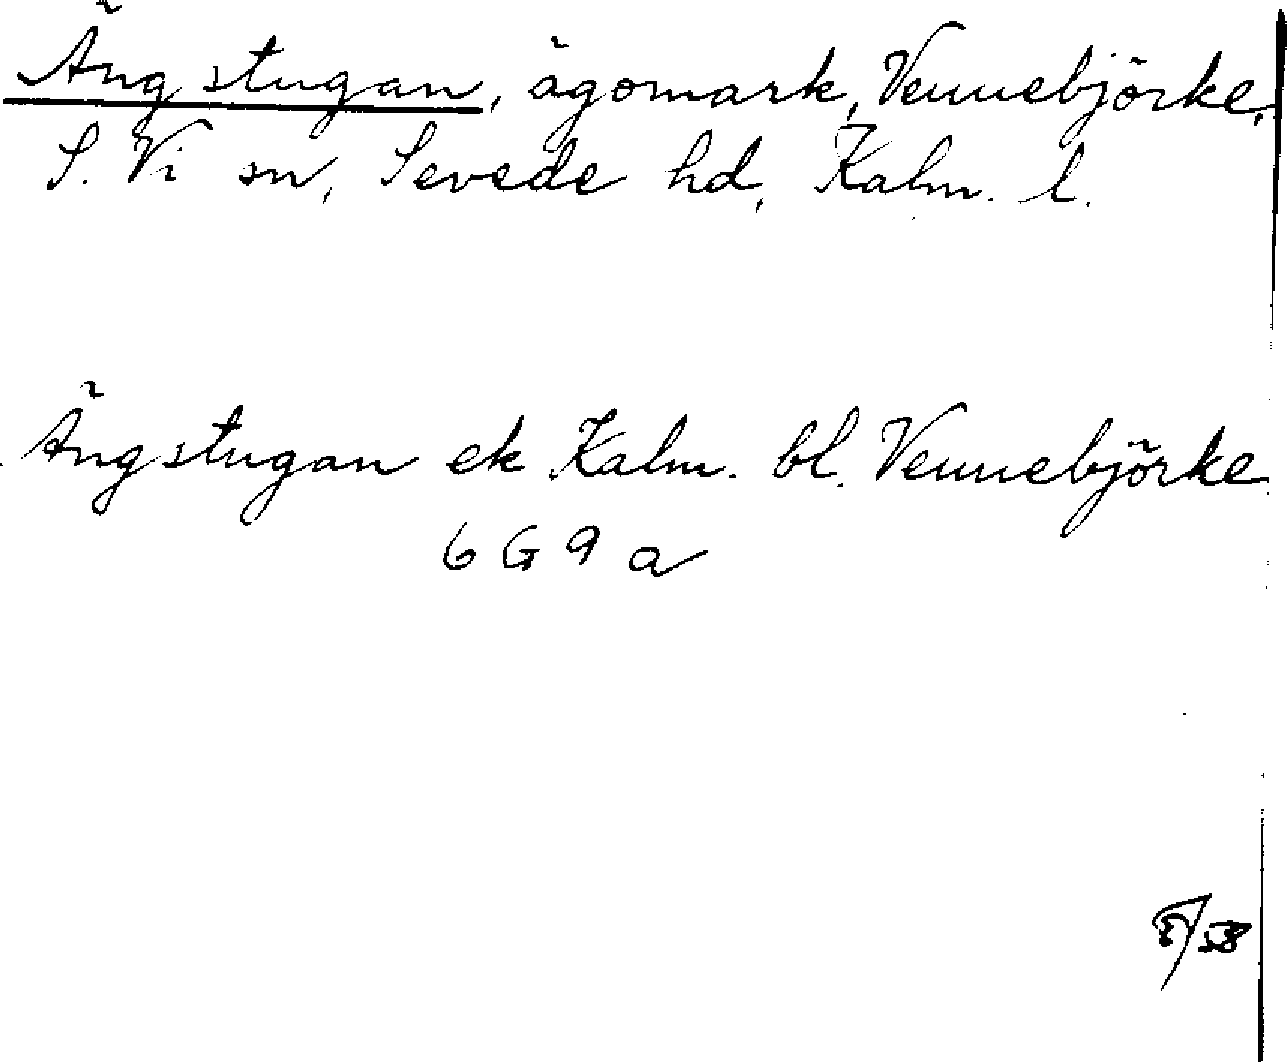 Ängstugan, ägomark, Vennebjörke,
S. Vi sn, Sevede hd, Kalm. l.
Ängstugan ek Kalm. bl. Vennebjörke
6 G 9 a